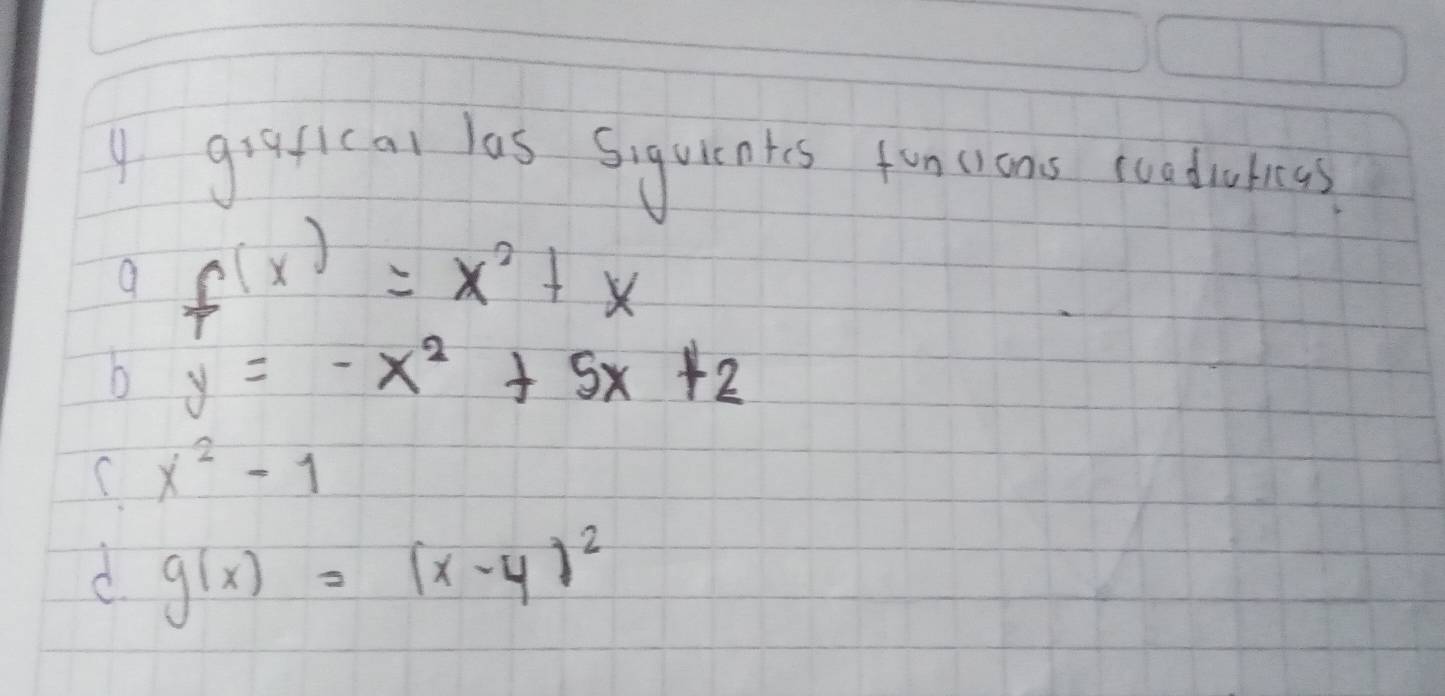 4 graficar las siguientes funcions cuadraticas.
a f(x) = x² + x
b y = -x² + 5x + 2
c. x² - 1
d. g(x) = (x-4)²